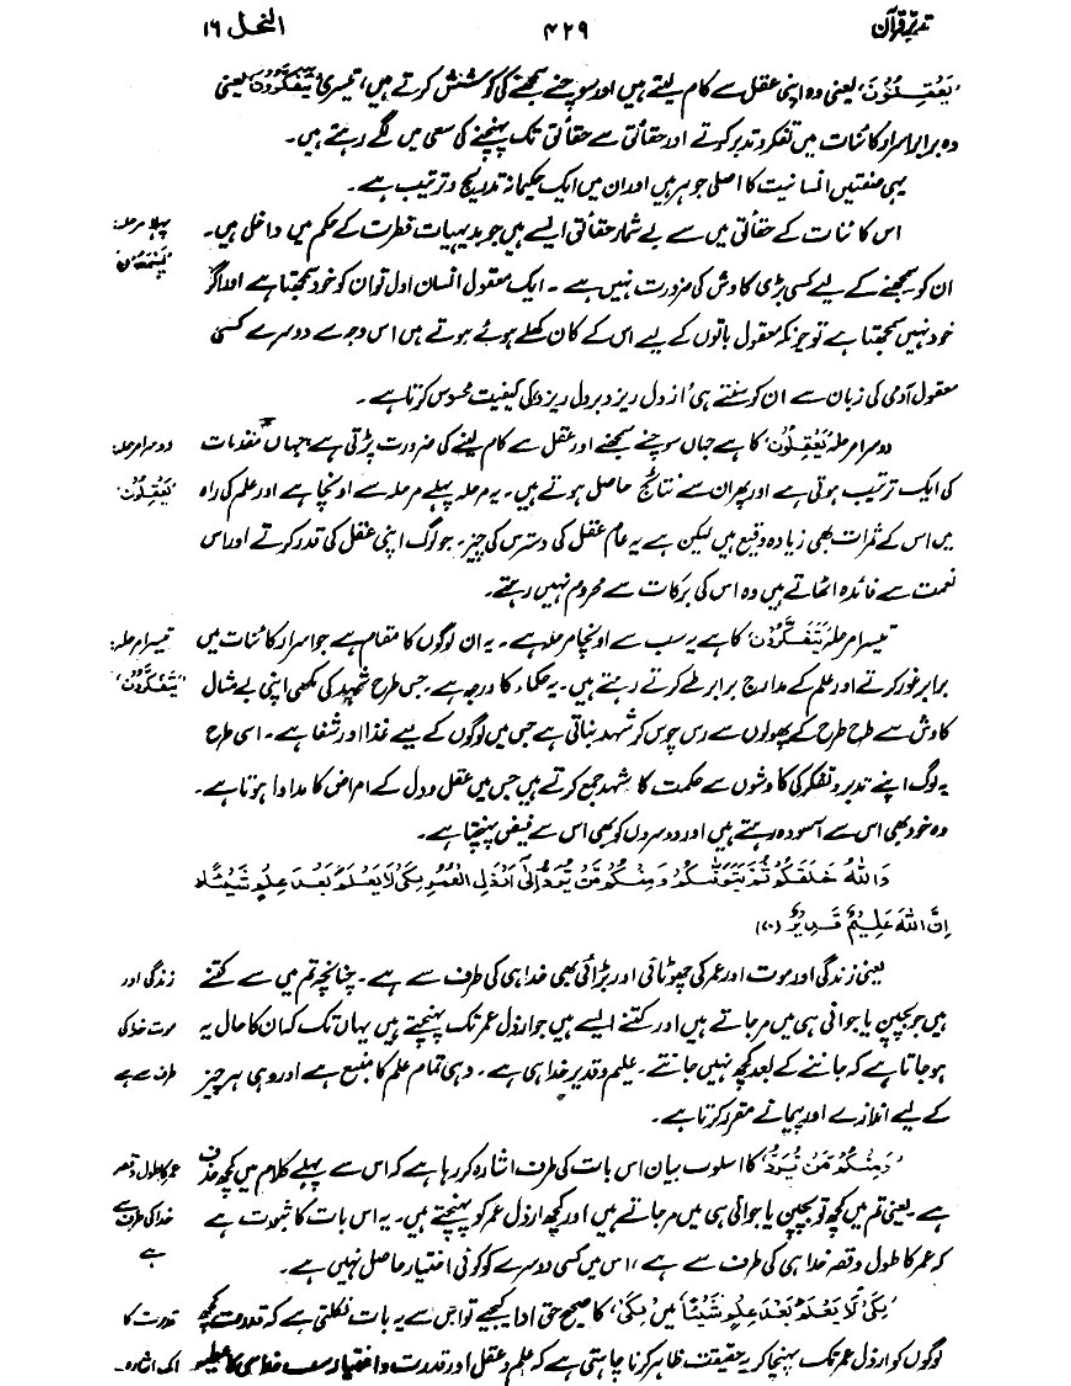 تدبرِ قرآن ۴۲۹ النحل ۱۶
’یَعْقِلُوْنَ‘، یعنی وہ اپنی عقل سے کام لیتے ہیں اور سوچنے سمجھنے کی کوشش کرتے ہیں، تیسری ’یَتَفَکَّرُوْنَ‘ یعنی
وہ برابر اسرارِ کائنات میں تفکر و تدبر کرتے اور حقائق سے حقائق تک پہنچنے کی سعی میں لگے رہتے ہیں۔
یہی صفتیں انسانیت کا اصلی جوہر ہیں اور ان میں ایک حکیمانہ تدریج و ترتیب ہے۔
پہلا مرحلہ:
’یَسْمَعُوْنَ‘
اس کائنات کے حقائق میں سے بے شمار حقائق ایسے ہیں جو بدیہیاتِ فطرت کے حکم میں داخل ہیں۔
ان کو سمجھنے کے لیے کسی بڑی کاوش کی ضرورت نہیں ہے۔ ایک معقول انسان اول تو ان کو خود سمجھتا ہے اور اگر
خود نہیں سمجھتا ہے تو چونکہ معقول باتوں کے لیے اس کے کان کھلے ہوئے ہوتے ہیں اس وجہ سے دوسرے کسی
معقول آدمی کی زبان سے ان کو سنتے ہی ’از دل ریزد بر دل ریزد‘ کی کیفیت محسوس کرتا ہے۔
دوسرا مرحلہ:
’یَعْقِلُوْنَ‘
دوسرا مرحلہ ’یَعْقِلُوْنَ‘ کا ہے جہاں سوچنے سمجھنے اور عقل سے کام لینے کی ضرورت پڑتی ہے، جہاں مقدمات
کی ایک ترتیب ہوتی ہے اور پھر ان سے نتائج حاصل ہوتے ہیں۔ یہ مرحلہ پہلے مرحلہ سے اونچا ہے اور علم کی راہ
میں اس کے ثمرات بھی زیادہ وقیع ہیں لیکن ہے یہ عام عقل کی دسترس کی چیز۔ جو لوگ اپنی عقل کی قدر کرتے اور اس
نعمت سے فائدہ اٹھاتے ہیں وہ اس کی برکات سے محروم نہیں رہتے۔
تیسرا مرحلہ:
’یَتَفَکَّرُوْنَ‘
تیسرا مرحلہ ’یَتَفَکَّرُوْنَ‘ کا ہے یہ سب سے اونچا مرحلہ ہے۔ یہ ان لوگوں کا مقام ہے جو اسرارِ کائنات میں
برابر غور کرتے اور علم کے مدارج برابر طے کرتے رہتے ہیں۔ یہ حکماء کا درجہ ہے۔ جس طرح شہد کی مکھی اپنی بے مثال
کاوش سے طرح طرح کے پھولوں سے رس چوس کر شہد بناتی ہے جس میں لوگوں کے لیے غذا اور شفا ہے۔ اسی طرح
یہ لوگ اپنے تدبر و تفکر کی کاوشوں سے حکمت کا شہد جمع کرتے ہیں جس میں عقل و دل کے امراض کا مداوا ہوتا ہے۔
وہ خود بھی اس سے آسودہ رہتے ہیں اور دوسروں کو بھی اس سے فیض پہنچتا ہے۔
وَاللّٰہُ خَلَقَکُمْ ثُمَّ یَتَوَفّٰىکُمْ وَمِنْکُمْ مَّنْ یُّرَدُّ اِلٰٓی اَرْذَلِ الْعُمُرِ لِکَیْ لَا یَعْلَمَ بَعْدَ عِلْمٍ شَیْئًا ؕ
اِنَّ اللّٰہَ عَلِیْمٌ قَدِیْرٌ (۷۰)
زندگی اور
موت خدا کی
طرف سے ہے
یعنی زندگی اور موت اور عمر کی چھوٹائی اور بڑائی بھی خدا ہی کی طرف سے ہے۔ چنانچہ تم میں سے کتنے
ہیں جو بچپن یا جوانی ہی میں مر جاتے ہیں اور کتنے ایسے ہیں جو ارذل عمر تک پہنچتے ہیں یہاں تک کہ ان کا حال یہ
ہو جاتا ہے کہ جاننے کے بعد کچھ نہیں جانتے۔ علیم و قدیر خدا ہی ہے۔ وہی تمام علم کا منبع ہے اور وہی ہر چیز
کے لیے اندازے اور پیمانے مقرر کرتا ہے۔
عمر کا طول و قصر
خدا کی طرف سے
ہے
’وَمِنْکُمْ مَّنْ یُّرَدُّ‘ کا اسلوب بیان اس بات کی طرف اشارہ کر رہا ہے کہ اس سے پہلے کلام میں کچھ حذف
ہے۔ یعنی تم میں کچھ تو بچپن یا جوانی ہی میں مر جاتے ہیں اور کچھ ارذل عمر کو پہنچتے ہیں۔ یہ اس بات کا ثبوت ہے
کہ عمر کا طول و قصر خدا ہی کی طرف سے ہے، اس میں کسی دوسرے کو کوئی اختیار حاصل نہیں ہے۔
قدرت کا
ایک اشارہ
’لِکَیْ لَا یَعْلَمَ بَعْدَ عِلْمٍ شَیْئًا‘ میں ’لِکَیْ‘، کا صحیح حق ادا کیجیے تو اس سے یہ بات نکلتی ہے کہ قدرت کچھ
لوگوں کو ارذل عمر تک پہنچا کر یہ حقیقت ظاہر کرنا چاہتی ہے کہ علم و عقل اور قدرت و اختیار سب خدا ہی کا عطیہ